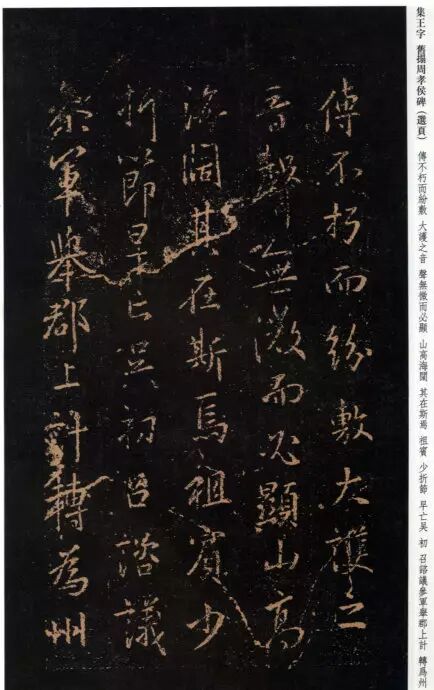 集王字 舊搨周孝侯碑(選頁) 傳不朽而紛敷 大護之音 聲無微而必顯 山高海闊 其在斯焉 祖賓 少折節 早亡吳 初 召諮議參軍舉郡上計 轉爲州
傳不朽而紛敷大護之
音聲無微而必顯山高
海闊其在斯焉祖賓少
折節早亡吳初召諮議
參軍舉郡上計轉為州